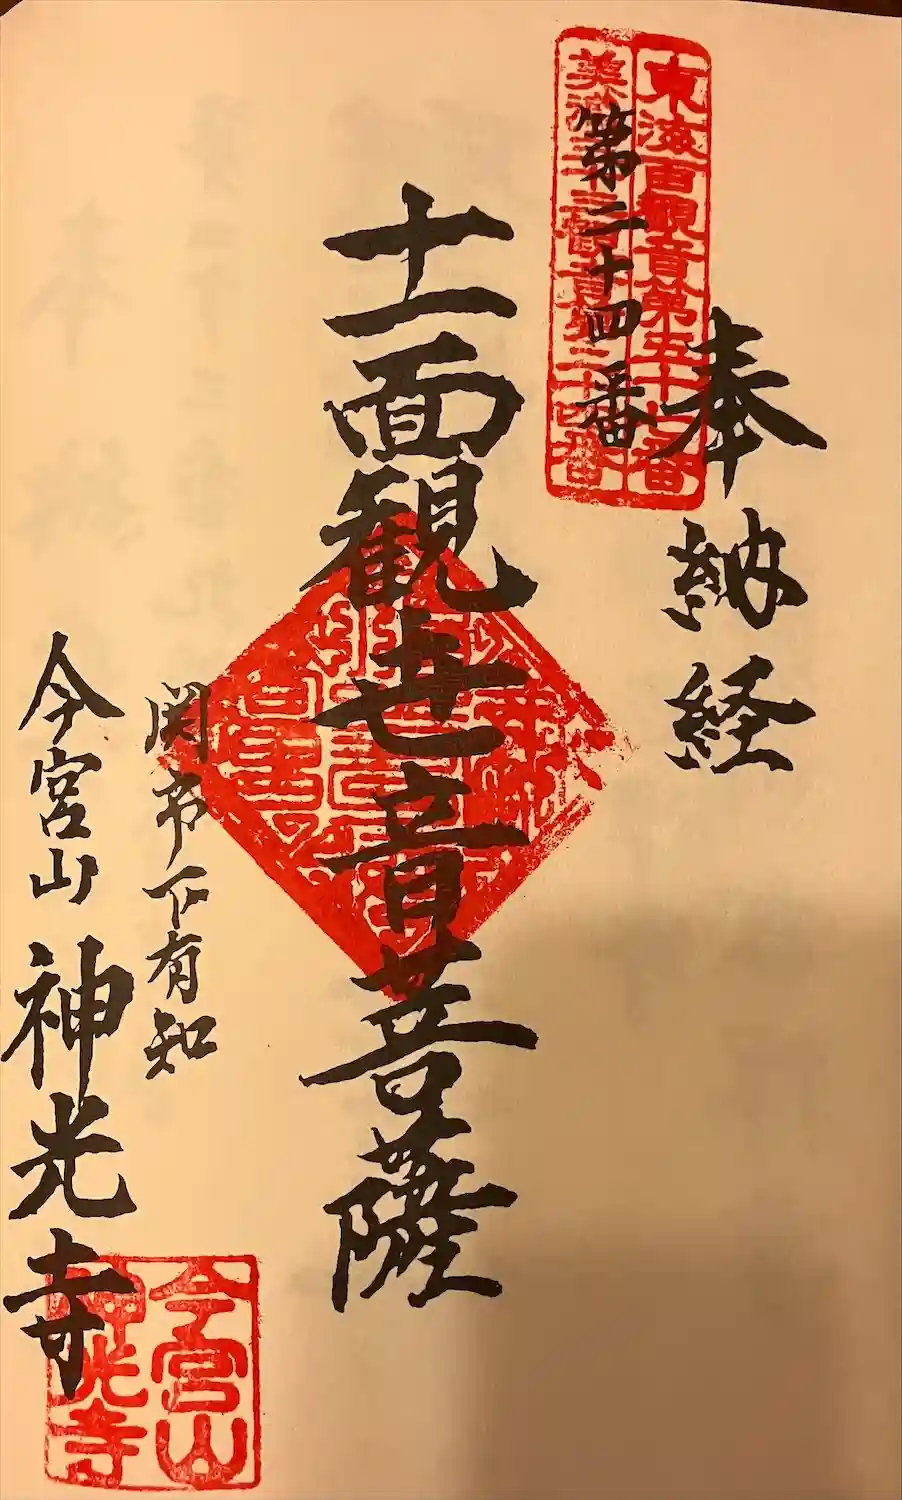 奉納経
東海百觀音第五十七番
美濃三十三觀音第二十四番
第二十四番
十一面観世音菩薩
関市下有知
今宮山 神光寺
今宮山
神光寺